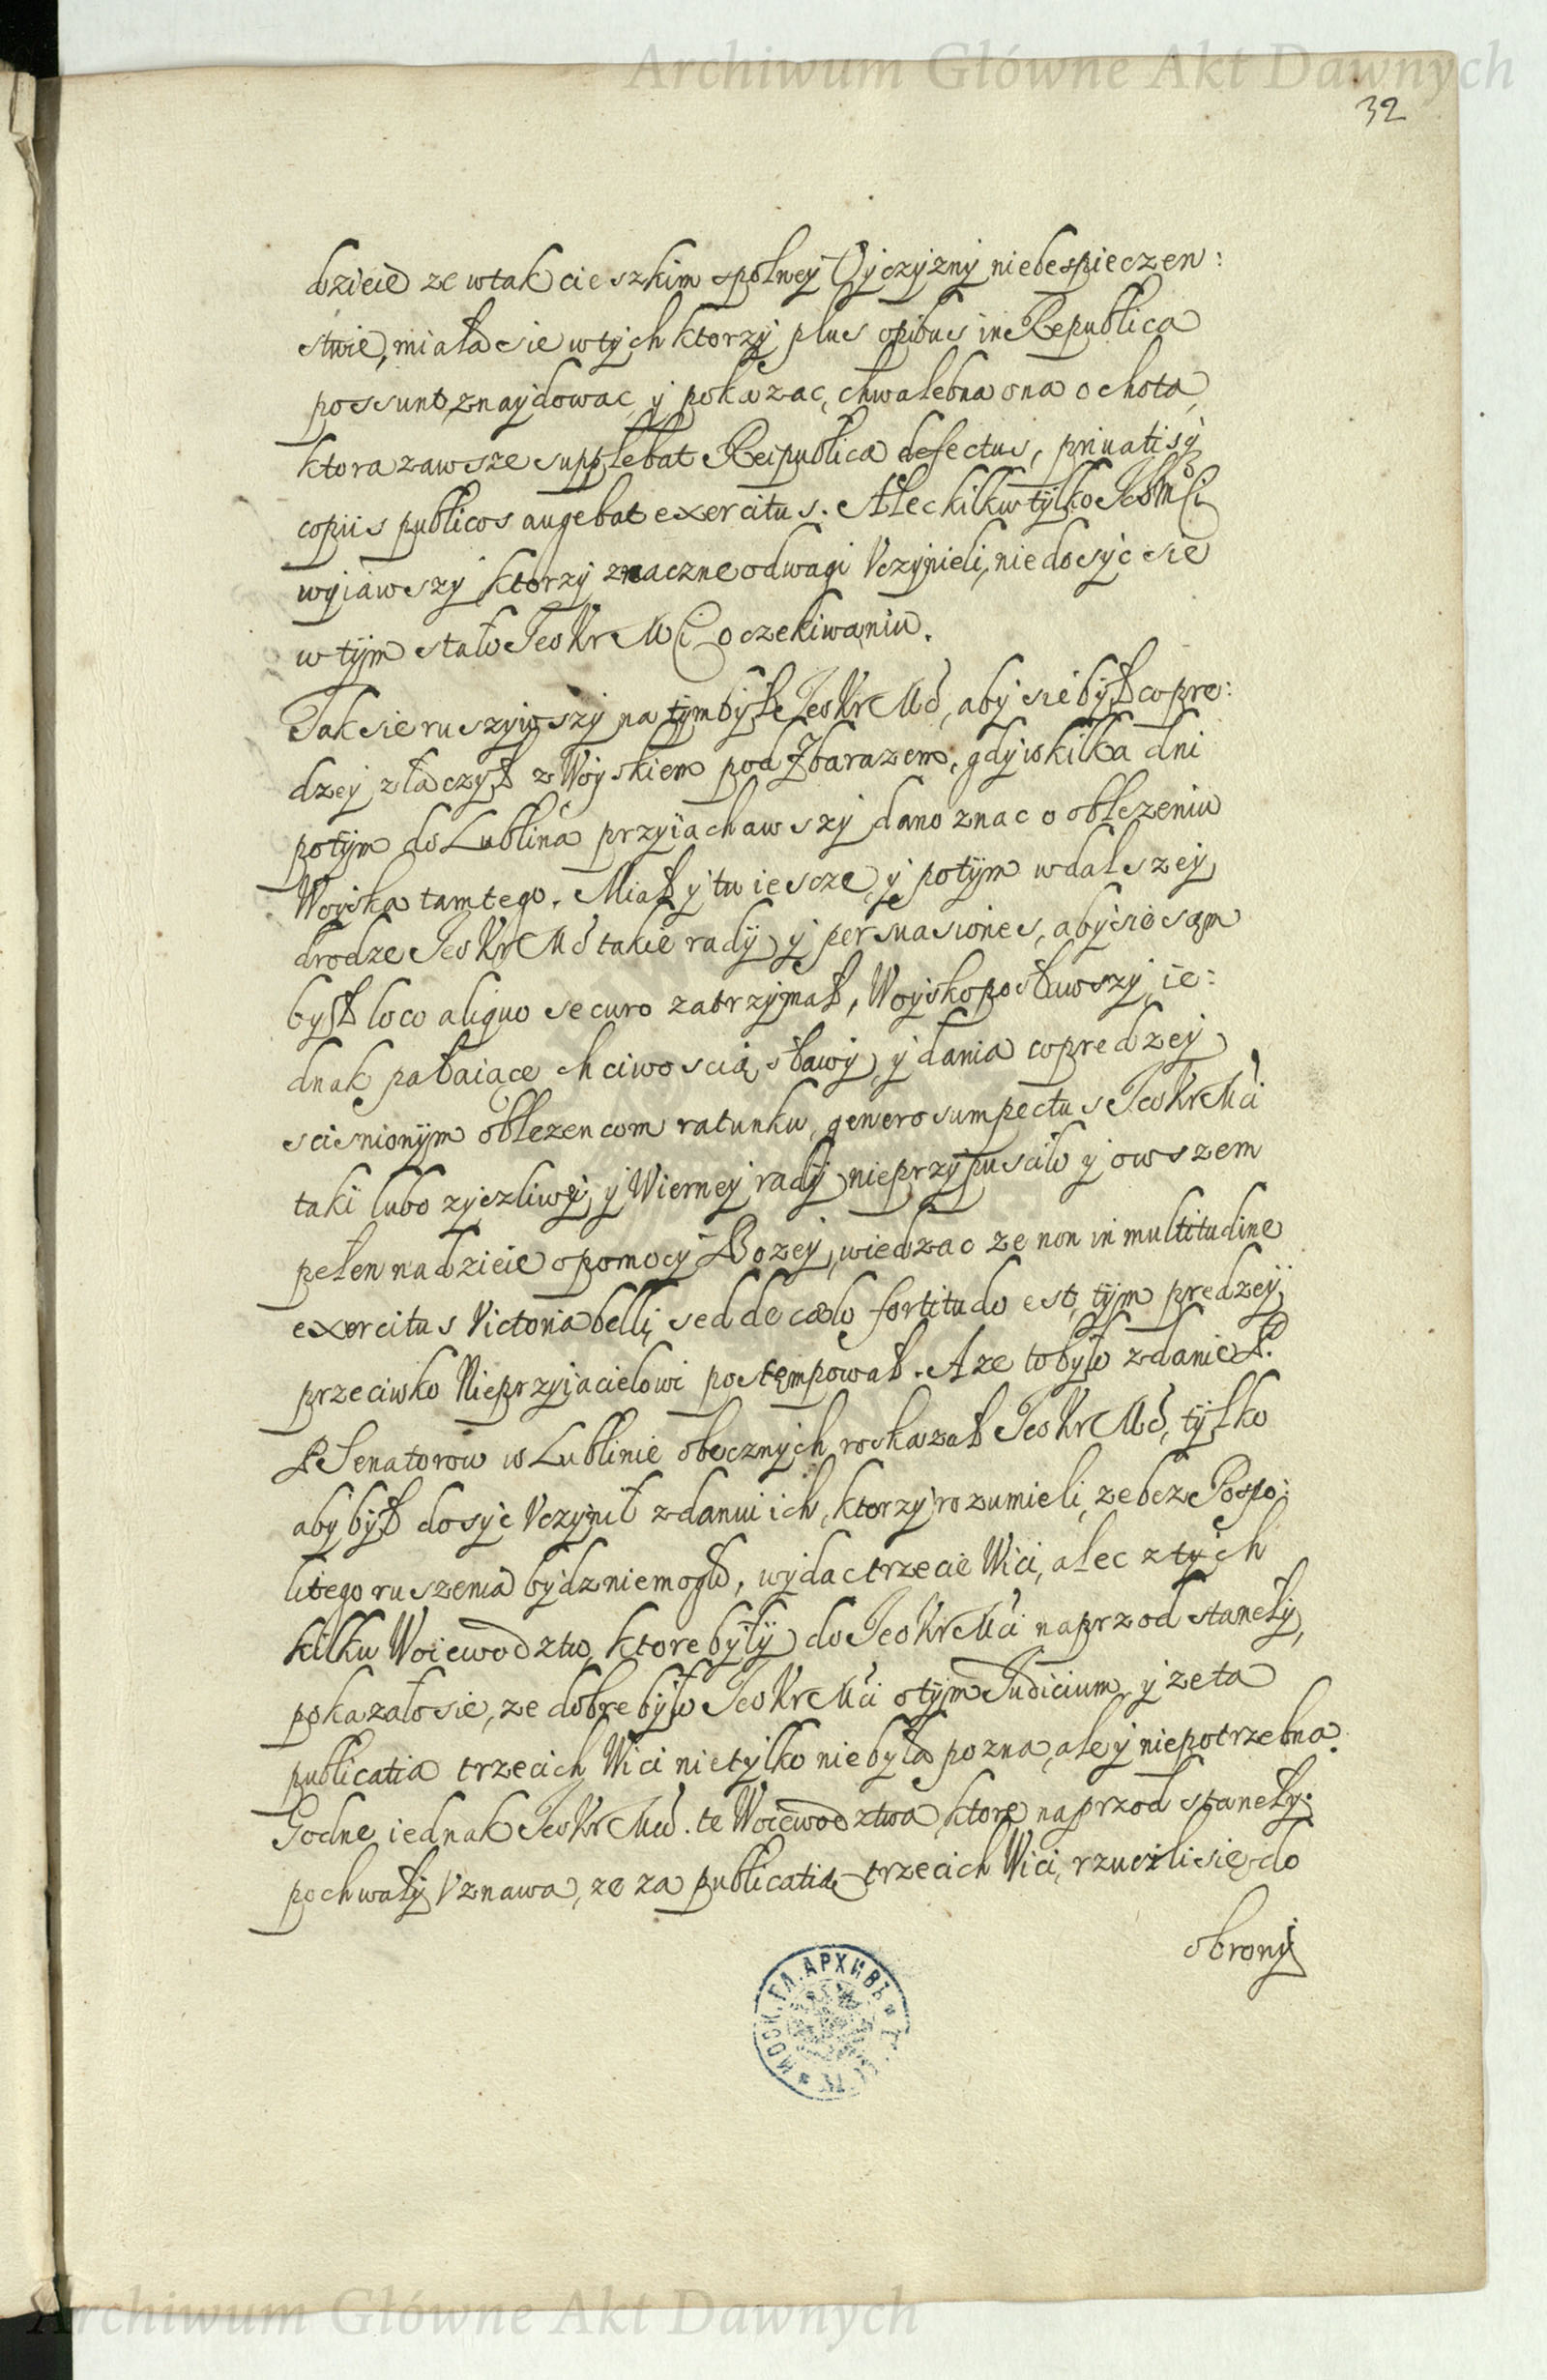 Archiwum Główne Akt Dawnych
32
dzieie ze w tak cieszkim spolney Oyczyzny niebespieczen:
stwie, miała sie w tych ktorzy plus opibus in Republica
possunt znaydowac y pokazac, chwalebna ona ochota,
ktora zawsze supplebat Reipublicæ defectus, priuatisq
copiis publicos augebat exercitus. Alec kilku tylko IchMci
wyiawszy ktorzy znaczne odwagi Vczynieli, niedosyc sie
w tym stało Jeo Kr Mci oczekiwaniu.
Tak sie ruszywszy na tym był Jeo Kr Mć, aby sie był co pre:
dzey złaczył z Woyskiem pod Zbarazem, gdy w kilka dni
potym do Lublina przyiachawszy dano znac o oblezeniu
Woyska tamtego. Miał y tu iescze y potym w dalszey
drodze Jeo Kr Mć takie rady y persuasiones, aby sie sam
był loco aliquo securo zatrzymał, Woysko posławszy ie:
dnak pałaiące chciwoscią sławy y dania co predzey
scisnionym oblezencom ratunku, generosum pectus Jeo Kr Mći
taki lubo zyczliwey y Wierney rady nieprzypusciło y owszem
pełen nadzieie o pomocy Bozey, wiedzac ze non in multitudine
exercitus Victoria belli, sed de cælo fortitudo est, tym predzey
przeciwko Nieprzyjacielowi postempował. A ze to było zdanie P.
P Senatorow w Lublinie obecznych roskazał Jeo Kr Mć, tylko
aby był dosyć Vczynił zdaniu ich, ktorzy rozumieli, ze bez Pospo:
litego ruszenia bydz niemogło, wydac trzecie Wici, alec z tych
kilku Woiewodztw, ktore były do Jeo Kr Mći naprzod stanely,
pokazało sie, ze dobre było Jeo Kr Mći o tym Judicium, y ze ta
publicatia trzecich Wici nie tylko niebyła pozna, ale y niepotrzebna.
Godne iednak Jeo Kr Mć. te Woiewodztwa, ktore naprzod stanely.
pochwały Vznawa, ze za publicatią trzecich Wici, rzucili się do
obrony
МОСК. ГЛ. АРХИВЪ
Archiwum Główne Akt Dawnych